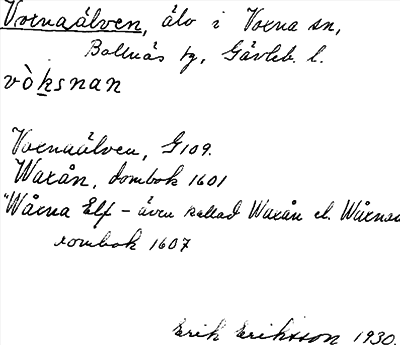 Voxnaälven, älv i Voxna sn,
Bollnäs tg, Gävleb. l.
vò̀ksnan
Voxnaälven, G109.
Waxån, dombok 1601
"Wåxna Elf – även kallad Waxån el. Wåxnan
dombok 1607
Erik Eriksson 1930.